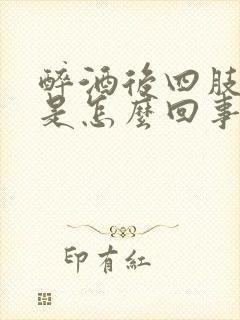 醉酒后四肢
是怎麽回事
印有紅